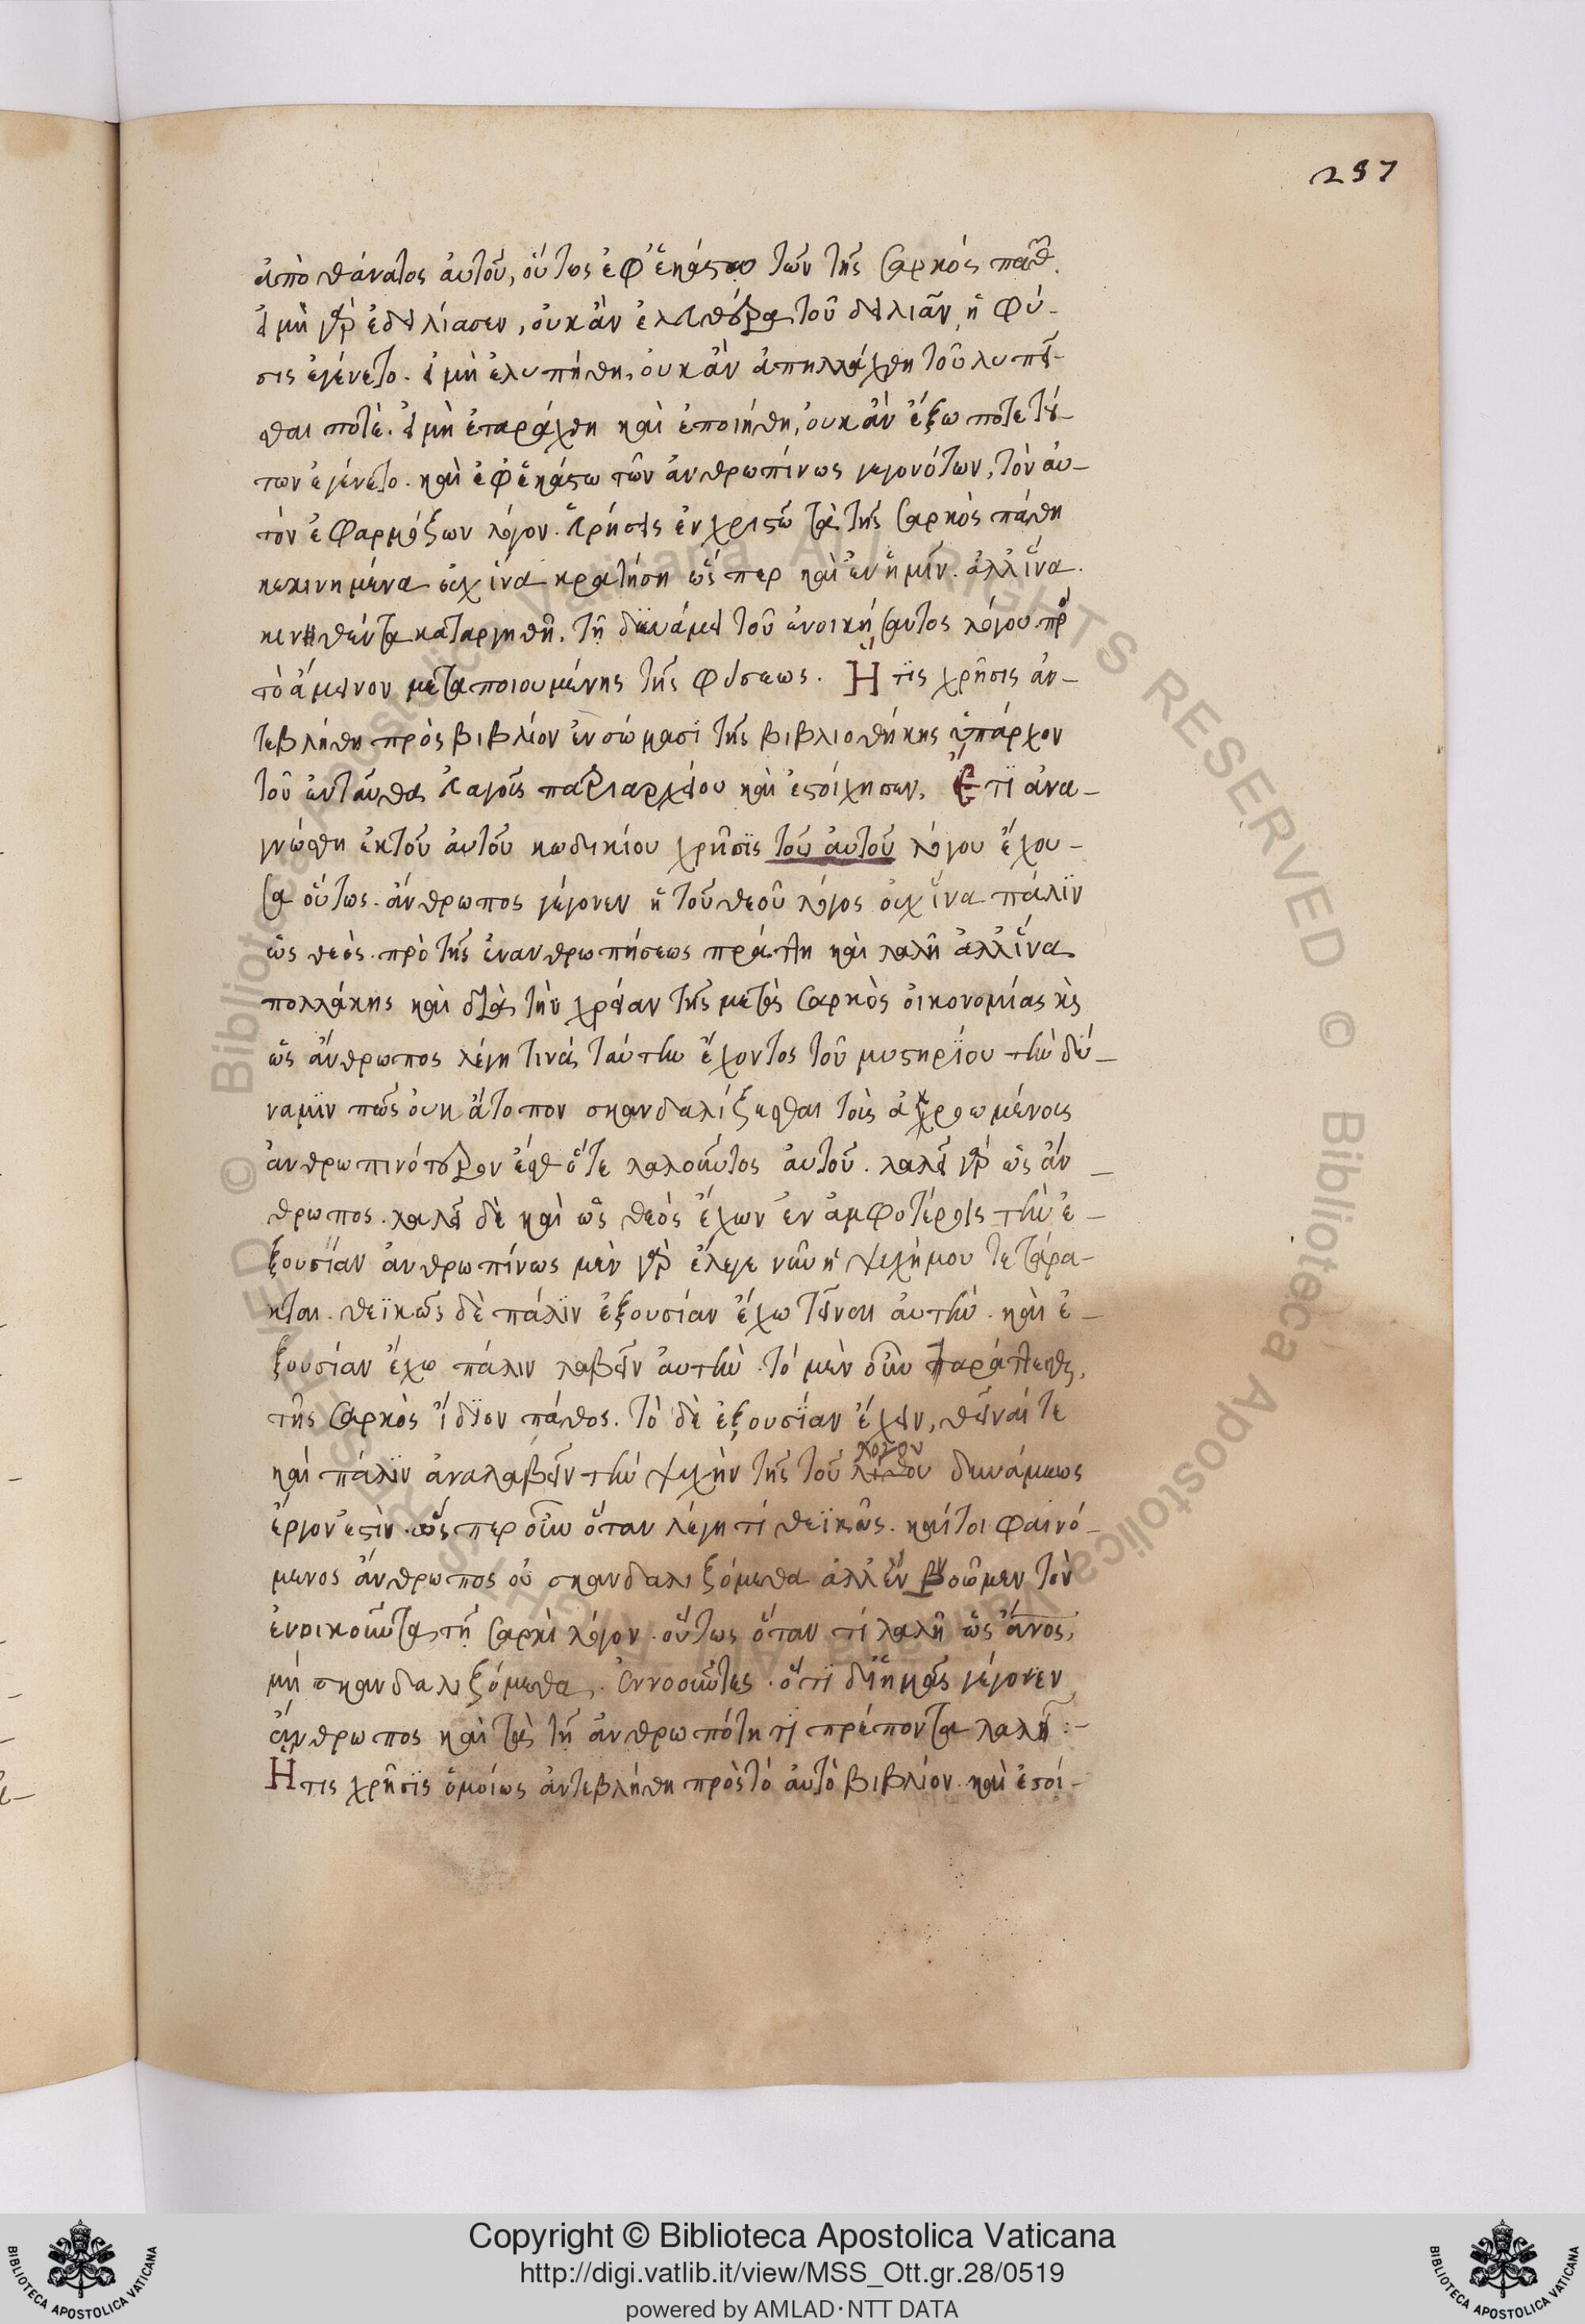 257
ἀπὸ θάνατος ἀυτοῦ, οὕτως ἐφ' ἑκάστω τῶν τῆς σαρκός παθ.
εἰ μὴ γὰρ ἐδειλίασεν, οὐκ ἂν ἐλευθέρα τοῦ δειλιᾶν ἡ φύ-
σις ἐγένετο. εἰ μὴ ἐλυπήθη, οὐκ ἂν ἀπηλλάχθη τοῦ λυπεῖ-
σθαι ποτὲ. εἰ μὴ ἐταράχθη καὶ ἐποιήθη, ουκ ἂν ἔξω ποτε τού-
των ἐγένετο. καὶ ἐφ' ἑκάστω τῶν ἀνθρωπίνως γεγονότων, τὸν αυ-
τόν ἐφαρμόζων λόγον. εὑρήσεις ἐν χριστῶ τὰ τῆς σαρκὸς πάθη
κεκινημένα οὐχ ἵνα κρατήση ὥσπερ καὶ ἐν ἡμῖν. ἀλλ' ἵνα
κινηθέντα καταργηθῆ. τῆ δυνάμει τοῦ ἐνοικήσαντος λόγου. πρὸ
τὸ ἄμεινον μεταποιουμένης τῆς φύσεως. Ἥτις χρῆσις ἀν-
τεβλήθη πρὸς βιβλίον ἐν σώμασι τῆς βιβλιοθήκης ὑπάρχον
τοῦ ἐνταῦθα εὐαγοῦς πατριαρχείου καὶ ἐστοίχησεν. Ἔτι ἀνα-
γνώσθη ἐκ τοῦ ἀυτοῦ κωδικίου χρῆσις τοῦ ἀυτοῦ λόγου ἔχου-
σα οὕτως. ἄνθρωπος γέγονεν ἡ τοῦ θεοῦ λόγος οὐχ ἵνα πάλιν
ὡς θεὸς. πρὸ τῆς ἐνανθρωπήσεως πράττη καὶ λαλῆ ἀλλ' ἵνα
πολλάκης καὶ διὰ τὴν χρείαν τῆς μετὰ σαρκὸς οἰκονομίας κὶς
ὡς ἄνθρωπος λέγη τινά ταύτην ἔχοντος τοῦ μυστηρίου τὴν δύ-
ναμιν πῶς οὐκ ἄτοπον σκανδαλίζεσθαι τοῖς ἀκροωμένοις
ἀνθρωπινότερον ἔσθ' ὅτε λαλοῦντος ἀυτοῦ. λαλεῖ γὰρ ὡς ἄν-
θρωπος. λαλεῖ δὲ καὶ ὡς θεὸς ἔχων ἐν ἀμφοτέροις τὴν ἐ-
ξουσίαν ἀνθρωπίνως μὲν γὰρ ἔλεγε νῦν ἡ ψυχή μου τετάρα-
κται. θεϊκῶς δὲ πάλιν ἐξουσίαν ἔχω θεῖναι ἀυτὴν. καὶ ἐ-
ξουσίαν ἔχω πάλιν λαβεῖν ἀυτὴν. τὸ μὲν οὖν ταράττεσθαι,
τῆς σαρκὸς ἴδιον πάθος. τὸ δὲ ἐξουσίαν ἔχειν, θεῖναί τε
καὶ πάλιν ἀναλαβεῖν τὴν ψυχὴν τῆς τοῦ λόγου δυνάμεως
ἔργον ἐστὶν. ὥσπερ οὖν ὅταν λέγη τί θεϊκῶς. καίτοι φαινό-
μενος ἄνθρωπος οὐ σκανδαλιζόμεθα ἀλλ' ἐννοοῦμεν τὸν
ἐνοικοῦντα τῆ σαρκὶ λόγον. οὕτως ὅταν τί λαλῆ ὡς ἄνος,
μὴ σκανδαλιζόμεθα. ἐννοοῦντες. ὅτι δι' ἡμᾶς γέγονεν
ἄνθρωπος καὶ τὰ τῆ ἀνθρωπότητι πρέποντα λαλῆ:-
Ἥτις χρῆσις ὁμοίως ἀντεβλήθη πρὸς τό ἀυτὸ βιβλίον. καὶ ἐστοί-
Copyright © Biblioteca Apostolica Vaticana
http://digi.vatlib.it/view/MSS_Ott.gr.28/0519
powered by AMLAD·NTT DATA